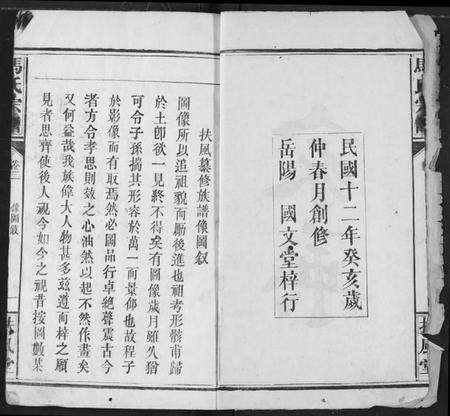 民國十二年癸亥歲
仲春月創修
岳陽 國文堂梓行
馬氏宗譜
扶風堂
扶風纂修族譜像圖叙
圖像所以追祖貌而勵後進也祖考形骸甫歸
於土即欲一見終不得矣有圖像歲月雖久猶
可令子孫揣其形容於萬一而景仰也故程子
於影像而有取焉然必圖品行卓絕聲震古今
者方令孝思則效之心油然以起不然作畫矣
又何益哉我族偉大人物甚多茲遵而梓之願
見者思齊使後人視今如今之視昔按圖數某
馬氏宗譜
卷二 像圖叙
扶風堂